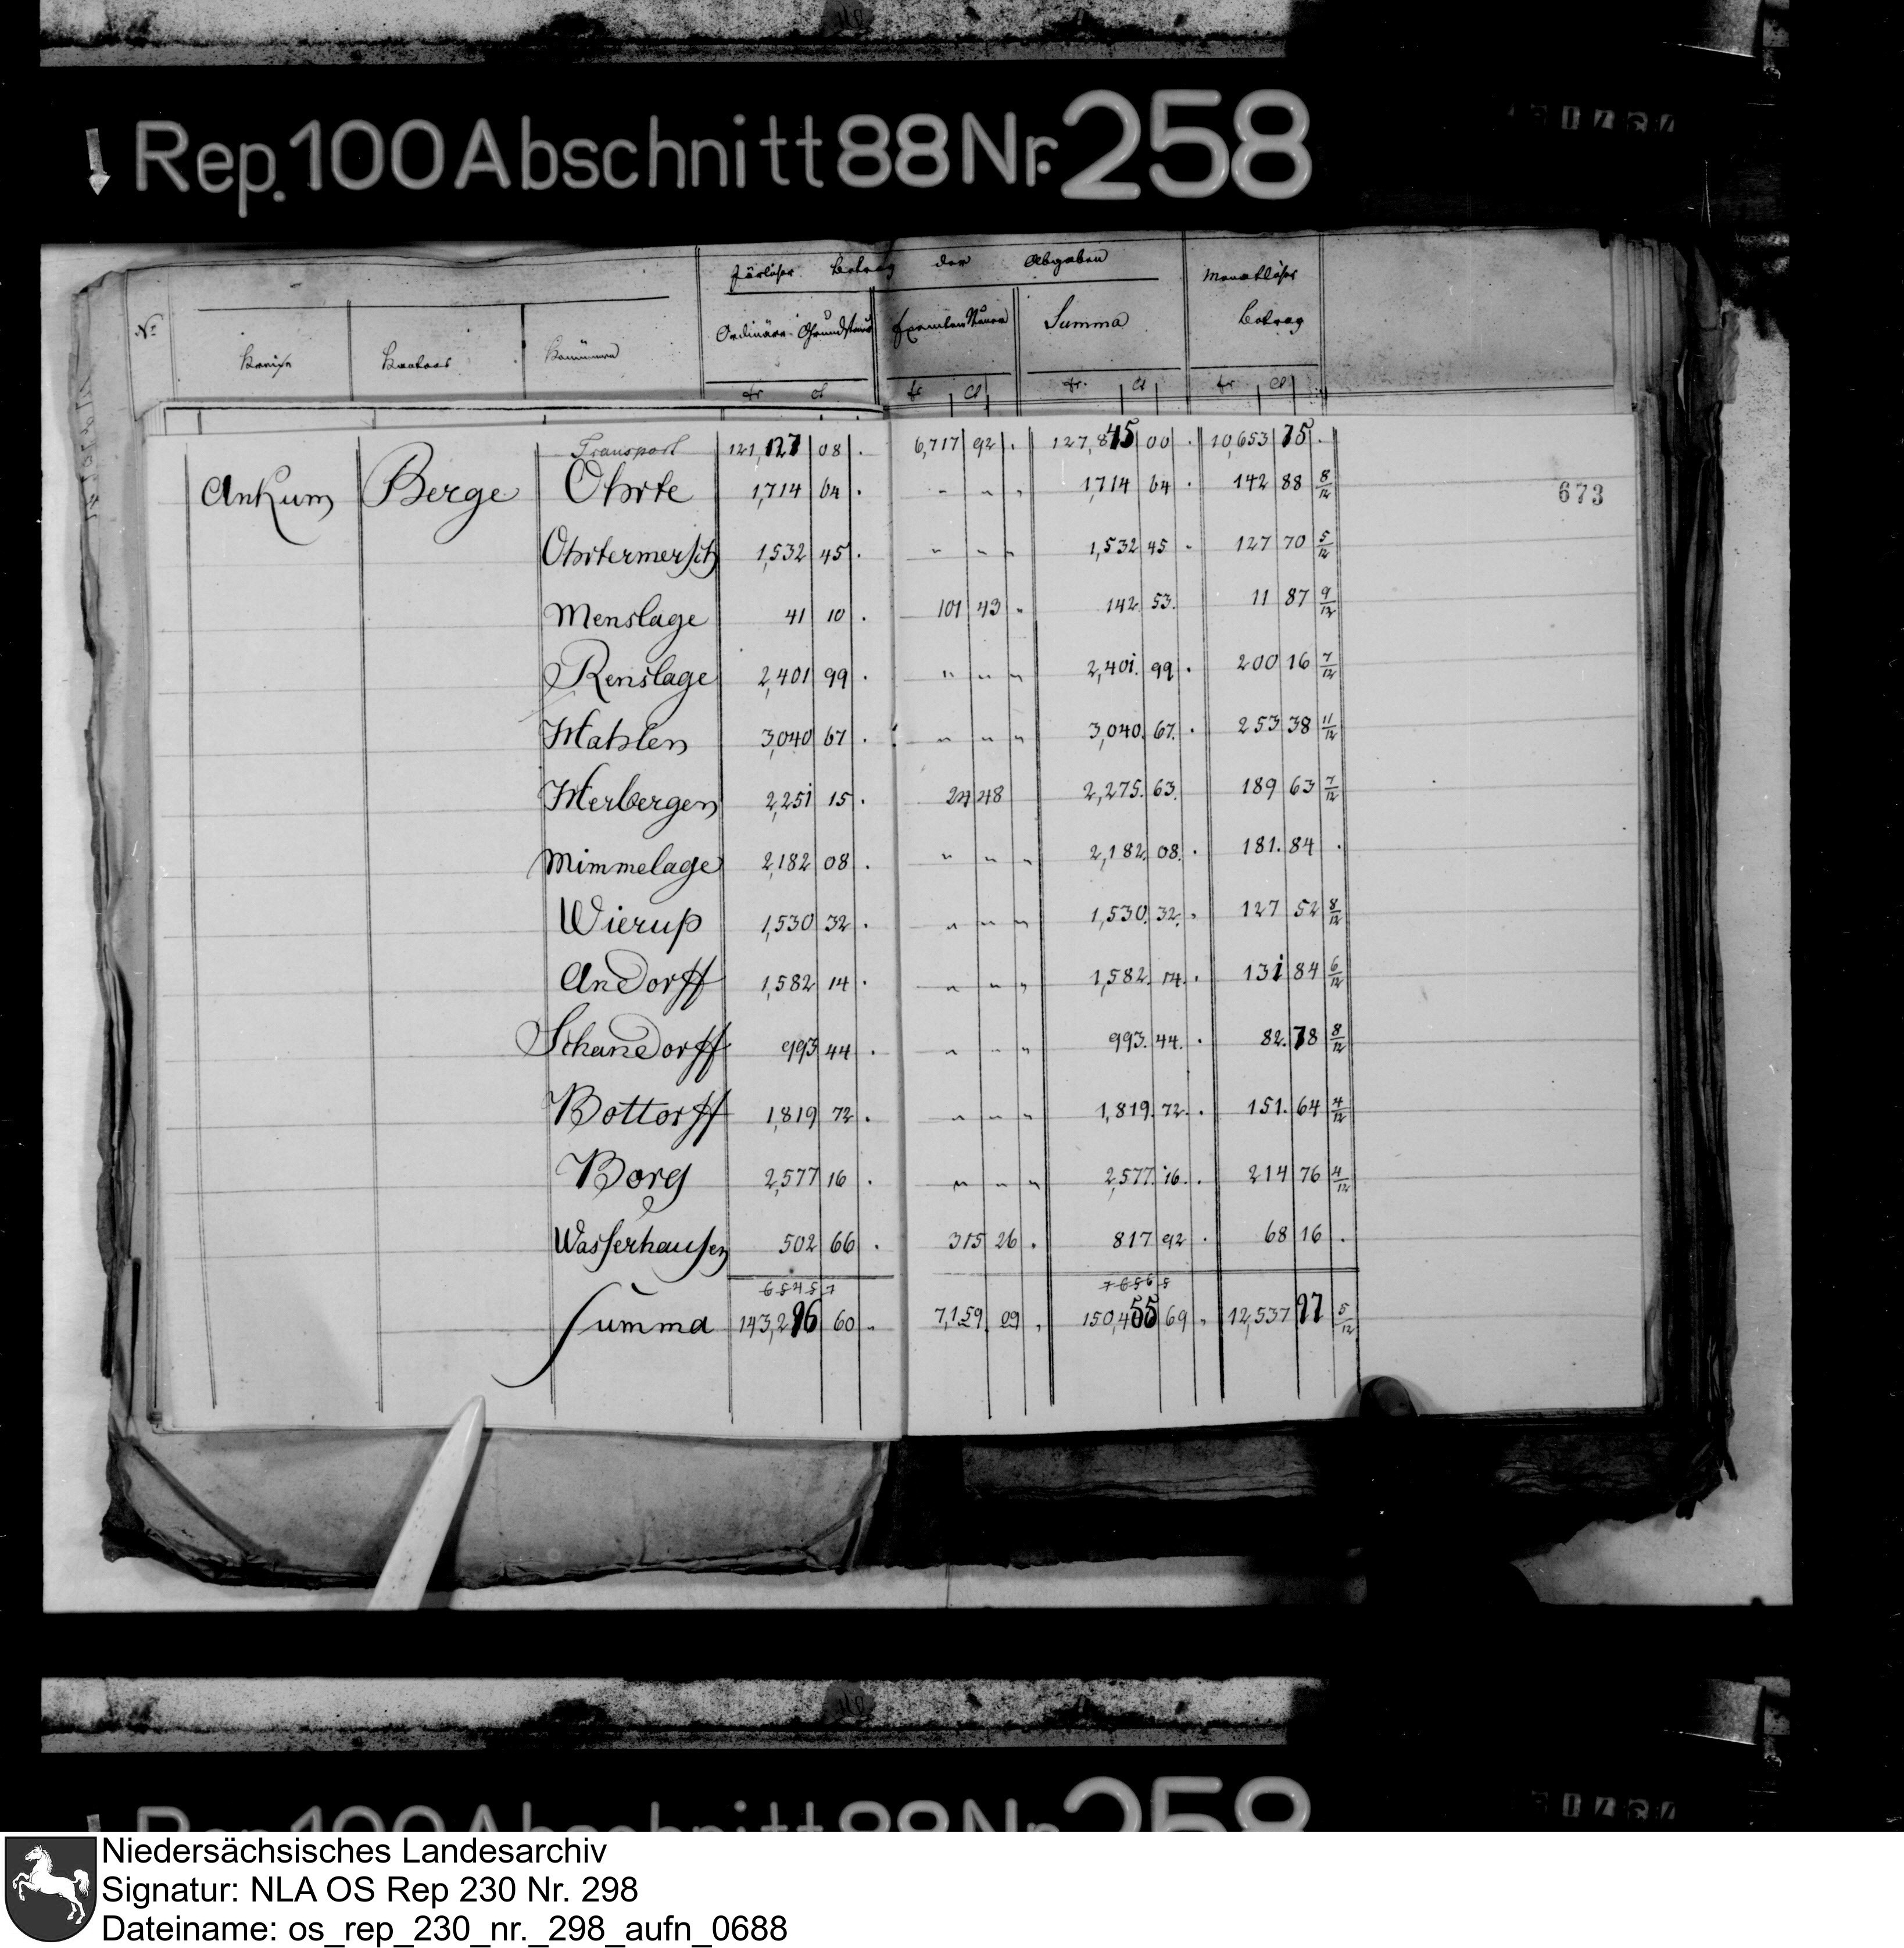 Rep. 100 Abschnitt 88 Nr. 258
Järlicher Betrag der Abgaben Monatlicher
Ordinäre Grundsteuer Exemten Steuer Summa Betrag
No Kreise Kantons Kommunen
fr ct fr ct fr. ct fr ct
Transport 121,127 08 . 6,717 92 . 127,845 00 . 10,653 75 .
Ankum Berge Ohrte 1,714 64 . " " " 1,714 64 . 142 88 8/12
673
Ohrtermersch 1,532 45 . " " " 1,532 45 . 127 70 5/12
Menslage 41 10 . 101 43 . 142. 53. 11 87 9/12
Renslage 2,401 99 . " " " 2,401. 99 . 200 16 7/12
Hahlen 3,040 67 . " " " 3,040. 67. . 253 38 11/12
Herbergen 2,251 15 . 24 48 2,275. 63. 189 63 7/12
Mimmelage 2,182 08 . " " " 2,182. 08. . 181. 84 .
Wierup 1,530 32 . " " " 1,530. 32. . 127 52 8/12
Andorff 1,582 14 . " " " 1,582. 14. . 131 84 6/12
Schandorff 993 44 . " " " 993. 44. . 82. 78 8/12
Bottorff 1,819 72 . " " " 1,819. 72. . 151. 64 4/12
Borg 2,577 16 . " " " 2,577. 16. . 214 76 4/12
Wasserhausen 502 66 . 315 26 . 817 92 . 68 16 .
6 5 4 5 7 7 6 5 6 5
Summa 143,296 60 . 7,159. 09 . 150,455 69 . 12,537 97 5/12
Rep. 100 Abschnitt 88 Nr. 258
Niedersächsisches Landesarchiv
Signatur: NLA OS Rep 230 Nr. 298
Dateiname: os_rep_230_nr._298_aufn_0688